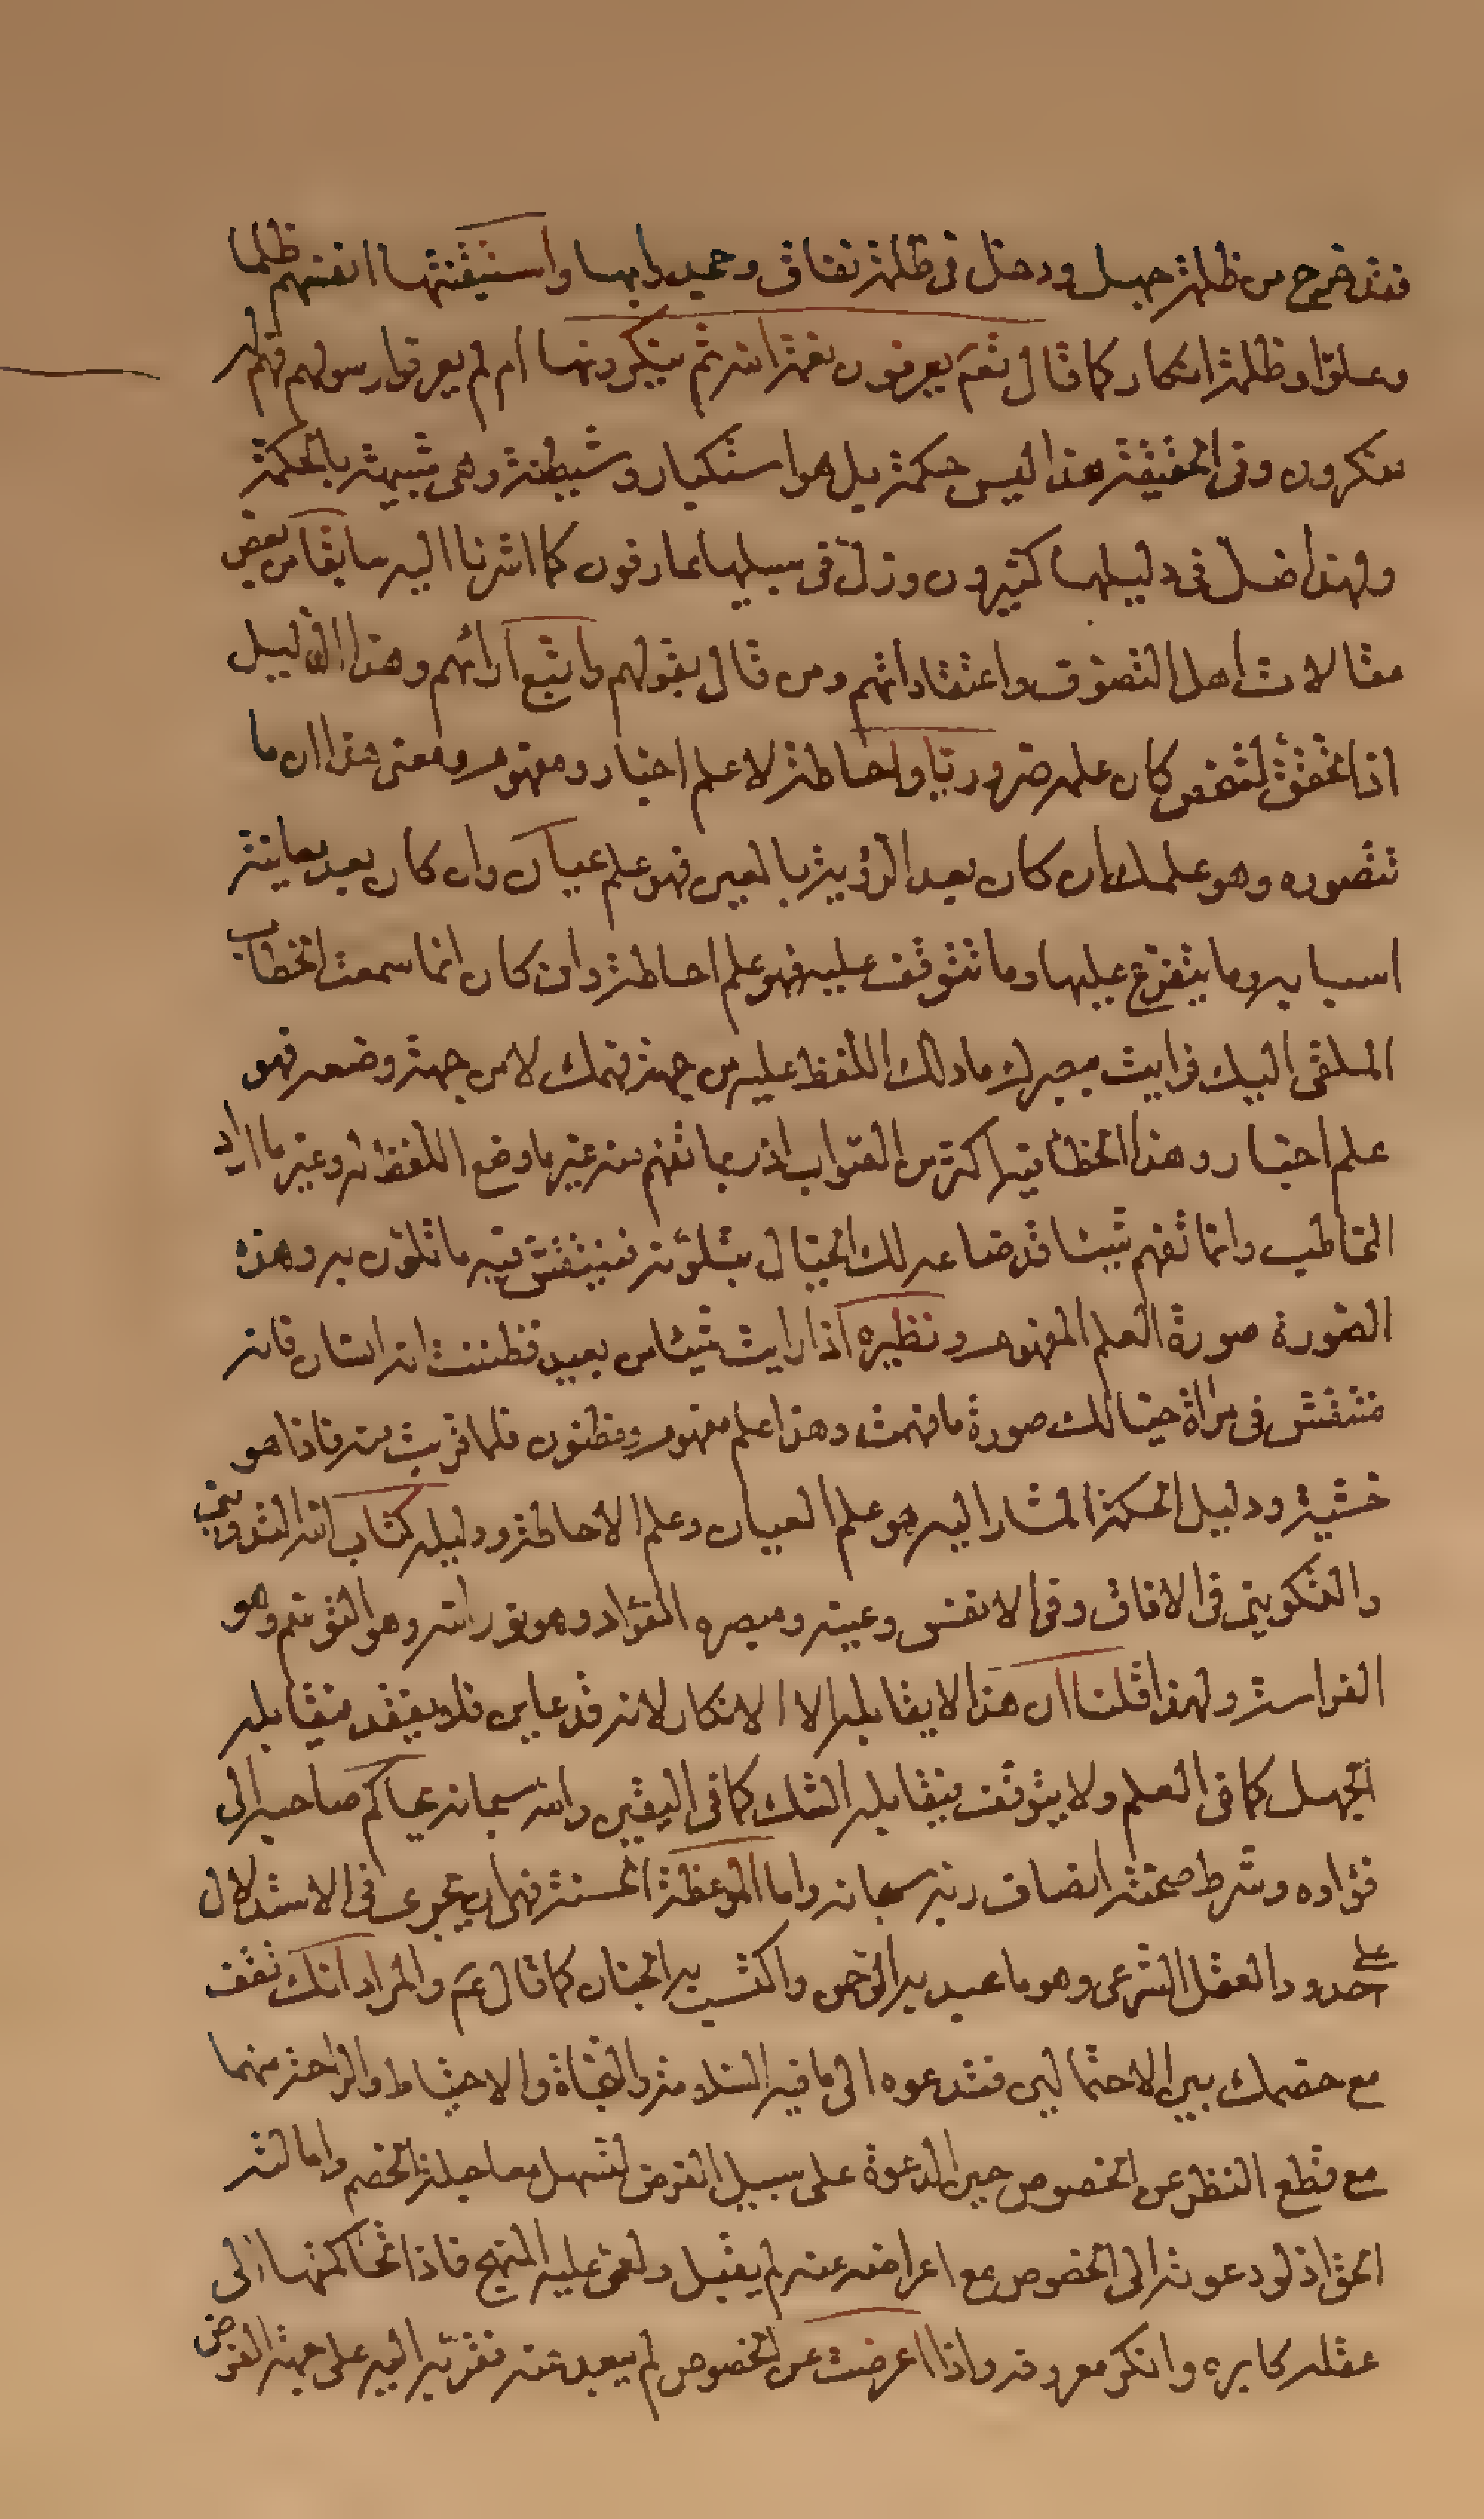 فقد خرج من ظلمة جهل ودخل في ظلمة نفاق وجحدوا بها واستيقنتها انفسهم ظلما
وعلوّا وظلمة انكار كما قال تعم يعرفون نعمة الله ثم ينكرونها ام لم يعرفوا رسولهم فهم له
منكرون وفي الحقيقة هذا ليس حكمة بل هو استكبار وشيطنة وهي شبيهة بالحكمة
ولهذا ضل في دليلها كثيرون وزلّ في سبيلها عارفون كما اشرنا اليه سابقا من بعض
مقالات اهل التصوّف واعتقاداتهم ومن قال بقولهم واتبع ارائهم وهذا الدليل
اذا تحقق لشخص كان علمه ضروريّا واحاطة لا علم اخبار ومفهوم ومعنى هذا ان ما
تتصوره وهو علمك ان كان بعد الرؤية بالعين فهو علم عيان وان كان بعد معاينة
اسبابه وما يتفرّع عليها وما تتوقف عليه فهو علم احاطة وان كان انما سمعت الخطاب
الملقى اليك فرايت ببصرك ما دلك اللفظ عليه من جهة فهمك لا من جهة وضعه فهو
علم اخبار وهذا الخطأ فيه اكثر من الصواب اذ ربما تفهم منه غير ما وضع اللفظ له وغير ما اراد
المخاطب وانما تفهم شيئا قد ضاعه لك الخيال بتلوّنه فينتقش فيه ما تلوّن به وهذه
الصّورة صورة العلم المفهوم ونظيره اذا رايت شيئا من بعيد فظننت انه انسان فانه
تنتقش في مرآة خيالك صورة ما فهمت وهذا علم مفهوم ومظنون فلما قربت منه فاذا هو
خشبة ودليل الحكمة المشار اليه هو علم العيان وعلم الاحاطة ودليله كتاب الله التدويني
والتكويني في الافاق وفي الانفس وعينه ومبصره الفؤاد وهو نور الله وهو التوسّم وهو
الفراسة ولهذا قلنا ان هذا لا يقابله الا الانكار لانه قد عاين فلا يفقد فيقابله
الجهل كما في العلم ولا يتوقف فيقابله الشك كما في اليقين والله سبحانه يحاكم صاحبه الى
فؤاده وشرط صحته انصاف ربه سبحانه واما الموعظة الحسنة فهي ان تجري في الاستدلال
على حدود العقل الشرعي وهو ما عبد به الرحمن واكتسب به الجنان كما قال عم والمراد انك تقف
مع خصمك بين الاحتمالين فتدعوه الى ما فيه السلامة والنجاة والاحتياط والراحة منهما
مع قطع النظر عن الخصوص حين الدعوة على سبيل الفرض لتسهل معاجلة الخصم وامالته
الحق اذ لو دعوته الى الخصوص مع اعراضه عنه لم يقبل ولعمى عليه المنهج فاذا تحاكمتما الى
عقله كابره وانكر معروفه واذا اعرضت عن الخصوص لم يبعد عنه فتقرّبه اليه على جهة الفرض